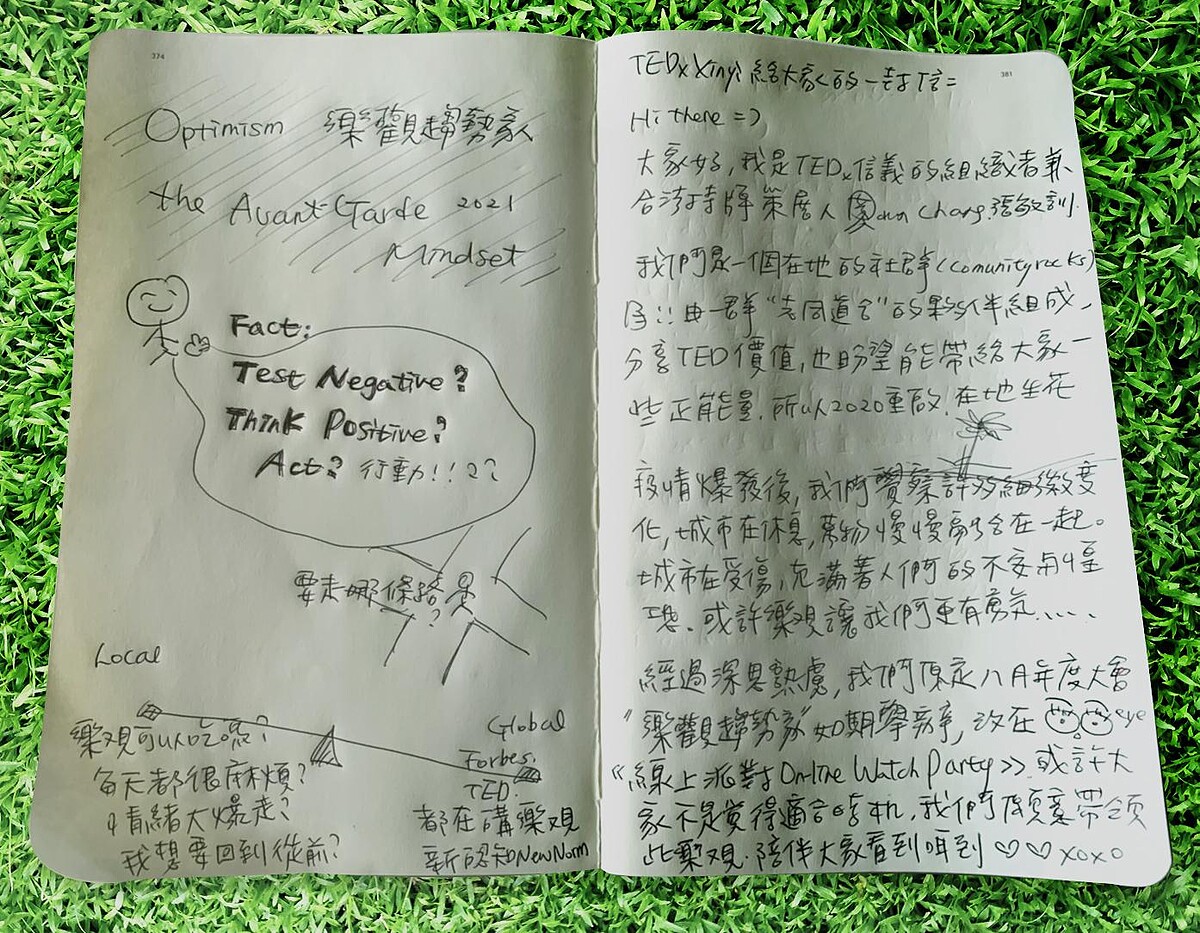 374
Optimism 樂觀趨勢家
the Avant Garde 2021
Mindset
Fact:
Test Negative?
Think Positive?
Act? 行動!!??
要走哪條路是
?
Local
樂观可以吃嗎?
每天都很麻煩?
情緒大爆走?
我想要回到從前?
Global
Forbes.
TED.
都在講樂观
新認知NewNorm
381
TEDxXinyi 給大家的一封信=
Hi there =)
大家好,我是TEDx信義的組織者兼
合法持牌策展人 Chang 張敏
我們是一個在地的社群(comunityrocks)
由一群"志同道合"的夥伴組成,
分享TED價值,也盼望能帶給大家一
些正能量.所以2020重啟.在地生花
疫情爆發後,我們覺察許多細微變
化,城市在休息,萬物慢慢融合在一起。
城市在受傷,充滿著人們的不安與惶
恐.或許樂观讓我們更有勇氣....
經過深思熟慮,我們原定八月年度大會
"樂觀趨勢家"如期舉辦,改在 eye
《線上派對Online Watch Party》.或許大
家不是覺得適合時机,我們願意帶領
此樂观.陪伴大家看到 到♡♡xoxo